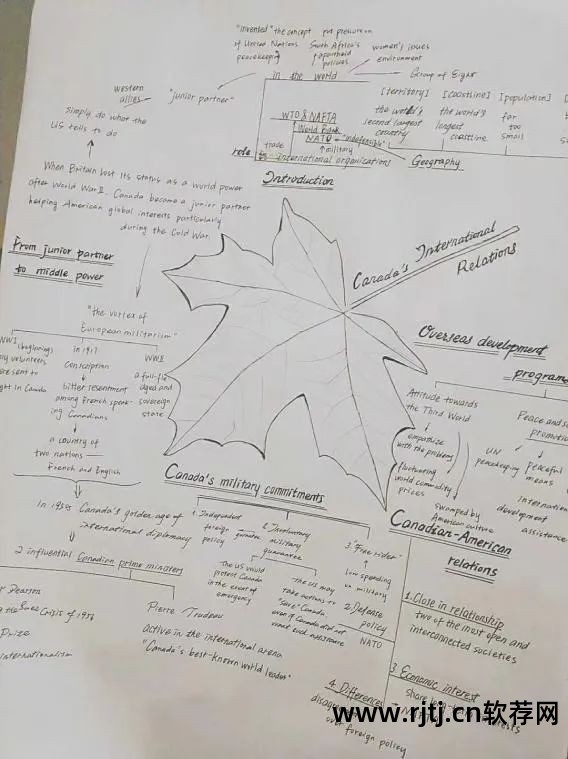 "invented" the concept
of United Nations
peacekeeping
put pressure on
South Africa's
apartheid
policies
women's issues
environment
Group of Eight
in the world
"junior partner"
western
allies
simply do what the
US tells to do
WTO & NAFTA
World Bank
NATO - "indefensible"
trade
military
role
international organizations
[territory]
the world's
second largest
country
[coastline]
the world's
longest
coastline
[population]
far
too
small
Geography
Introduction
When Britain lost its status as a world power
after World War II, Canada became a junior partner
helping American global interests particularly
during the Cold War.
From junior partner
to middle power
Canada's International
Relations
"the vortex of
European militarism"
WWI (beginning)
volunteers
sent to
in Canada
in 1917
Conscription
bitter resentment
among French speak-
ing Canadians
a country of
two nations —
French and English
WWII
aged and
sovereign
state
In 1958 Canada's golden age of
international diplomacy
2 influential Canadian prime ministers
Pearson
the Suez Crisis of 1956
Prize
internationalism
Pierre Trudeau
active in the international arena
"Canada's best-known world leader"
Overseas development
programs
Attitude towards
the Third World
empathize
with the problems
fluctuating
world commodity
prices
swamped by
American culture
Peace and
UN
peacekeeping
peaceful
means
development
assistance
Canada's military commitments
1. Independent
foreign
policy
2. Involuntary
military
guarantee
The US would
protect Canada
in the event of
emergency
The US may
take actions to
"save" Canada
even if Canada did not
want such assistance
3. "Free rider"
low spending
on military
Canadian-American
relations
1. Close in relationship
two of the most open and
interconnected societies
2. Defense
policy
NATO
3. Economic interest
share
4. Differences
over foreign policy
www.rjtj.cn软荐网